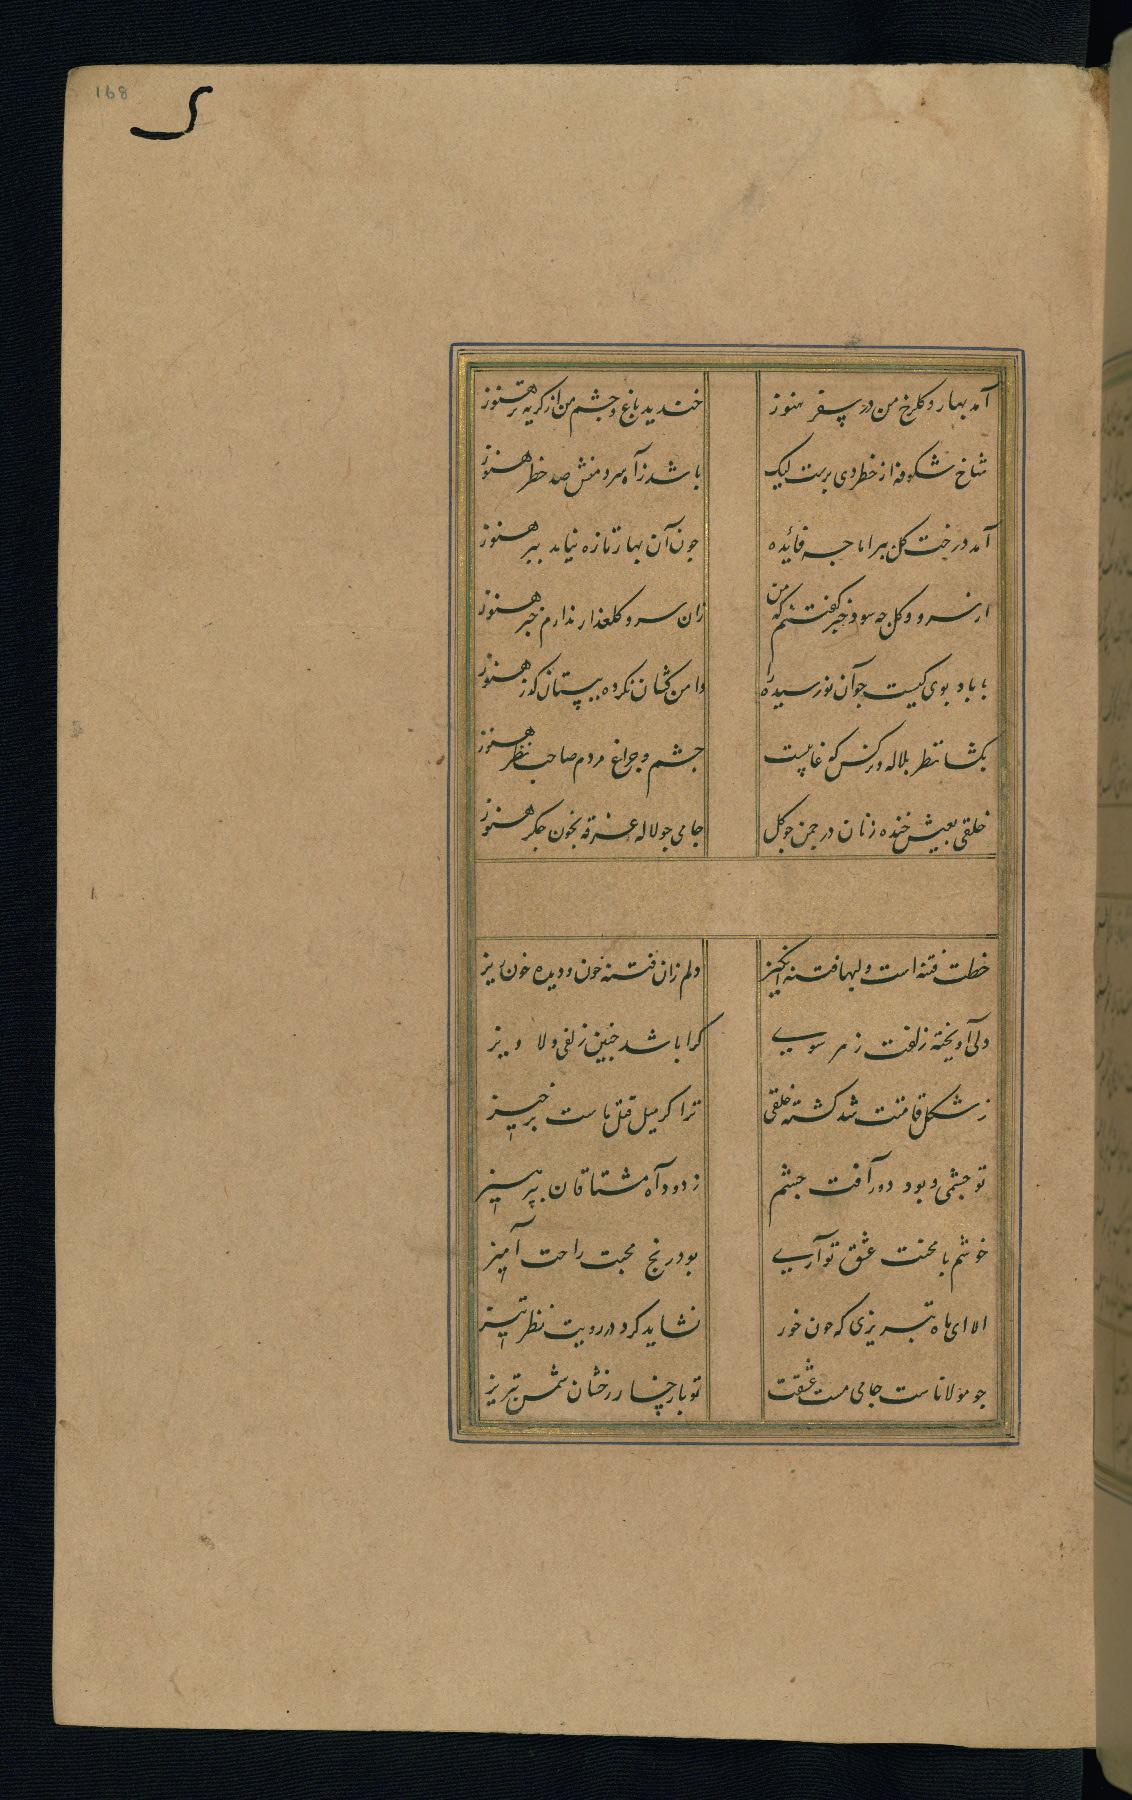 168
آمد بهار و کلرخ من در سفر هنوز
خندید باغ و چشم من از کریه تر هنوز
شاخ شکوفه از خطر دی برست لیک
باشد ز آه سرد منش صد خطر هنوز
آمد درخت کل ببر اما چه فائده
چون آن بهار تازه نیامد ببر هنوز
از سرو و کل چه سود خبر کفتنم که من
زان سرو کلعذار ندارم خبر هنوز
با باد بوی کیست چو آن نورسیده را
دامن کشان نکرده ببستان کذر هنوز
بکشا نظر بلاله و نرکس که غایبست
چشم و چراغ مردم صاحب نظر هنوز
خلقی بعیش خنده زنان در چمن چو کل
جامی چو لاله غرقه بخون جکر هنوز
خطت فتنه است و لبها فتنه انکیز
دلم زان فتنه خون و دیده خون ریز
دلی آویخته زلفت ز هر سویی
کرا باشد چنین زلفی دلاویز
ز شکل قامتت شد کشته خلقی
ترا کر میل قتل ماست برخیز
تو چشمی و بود دور آفت چشم
ز دود آه مشتاقان بپرهیز
خوشم با محنت عشق تو آری
بود رنج محبت راحت آمیز
الا ای ماه تبریزی که چون خور
نشاید کرد در رویت نظر تیز
چو مولاناست جامی مست عشقت
تو با رخسار رخشان شمس تبریز